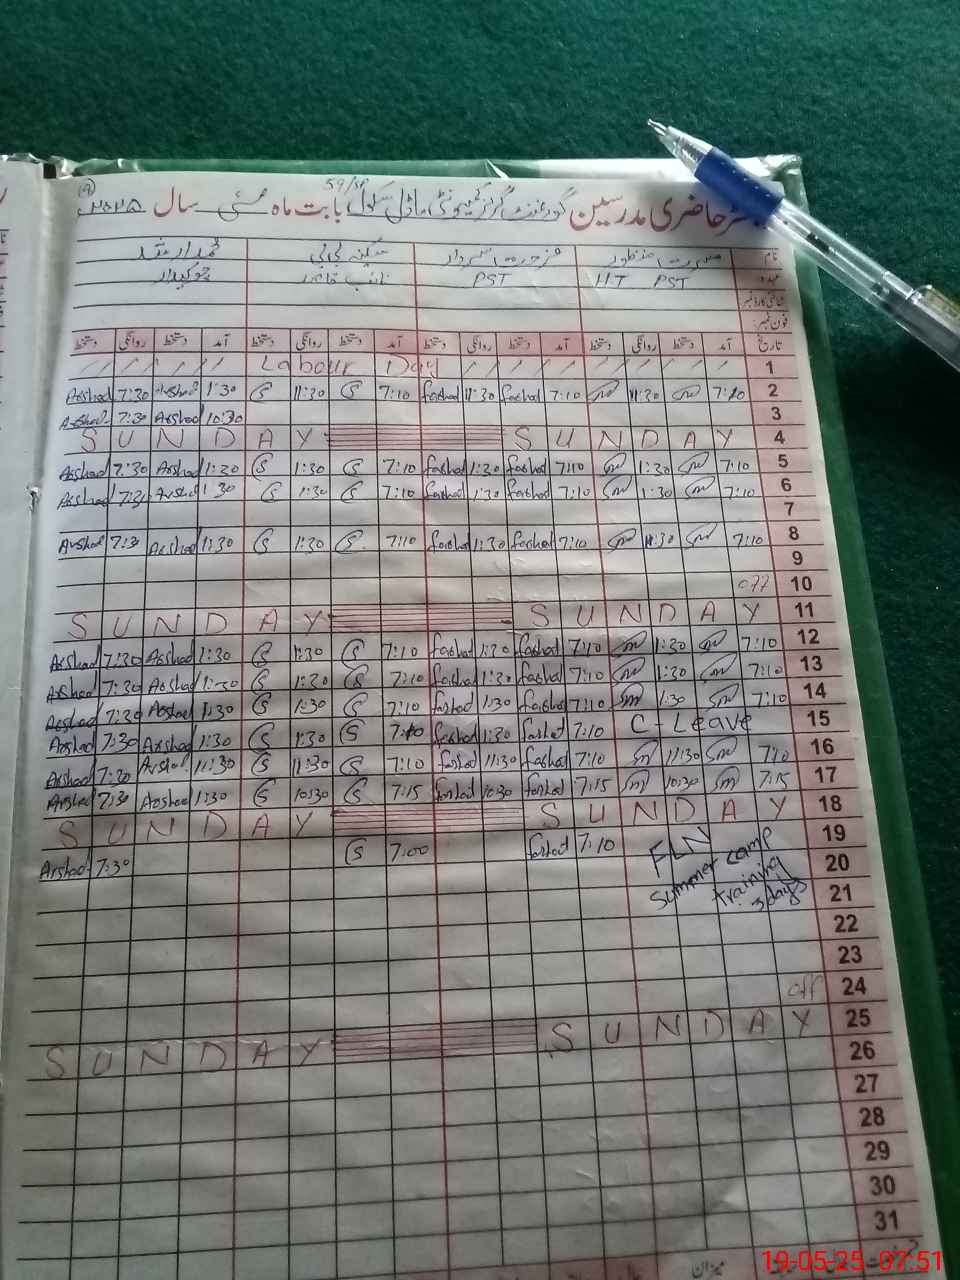 رجسٹر حاضری مدرسین گورنمنٹ گرلز کمیونٹی ماڈل سکول 59/SP بابت ماہ مئی سال ۲۰۲۵
نام مسرت منظور فرحت سردار سکینہ بی بی محمد ارشد
عہدہ HT PST PST نائب قاصد چوکیدار
شناختی کارڈ نمبر
فون نمبر
تاریخ آمد دستخط روانگی دستخط آمد دستخط روانگی دستخط آمد دستخط روانگی دستخط آمد دستخط روانگی دستخط
Labour Day 1
Arshad 7:30 Arshad 1:30 S 11:30 S 7:10 farhad 11:30 farhad 7:10 sm 11:30 sm 7:10 2
Arshad 7:30 Arshad 10:30 3
SUNDAY SUNDAY 4
Arshad 7:30 Arshad 1:30 S 1:30 S 7:10 farhad 1:30 farhad 7:10 sm 1:30 sm 7:10 5
Arshad 7:30 Arshad 1:30 S 1:30 S 7:10 farhad 1:30 farhad 7:10 sm 1:30 sm 7:10 6
7
Arshad 7:30 Arshad 1:30 S 1:30 S 7:10 farhad 1:30 farhad 7:10 sm 1:30 sm 7:10 8
9
off 10
SUNDAY SUNDAY 11
Arshad 7:30 Arshad 1:30 S 1:30 S 7:10 farhad 1:30 farhad 7:10 sm 1:30 sm 7:10 12
Arshad 7:30 Arshad 1:30 S 1:30 S 7:10 farhad 1:30 farhad 7:10 sm 1:30 sm 7:10 13
Arshad 7:30 Arshad 1:30 S 1:30 S 7:10 farhad 1:30 farhad 7:10 sm 1:30 sm 7:10 14
Arshad 7:30 Arshad 1:30 S 1:30 S 7:10 farhad 1:30 farhad 7:10 C-Leave 15
Arshad 7:30 Arshad 11:30 S 11:30 S 7:10 farhad 11:30 farhad 7:10 sm 11:30 sm 7:10 16
Arshad 7:30 Arshad 1:30 S 10:30 S 7:15 farhad 10:30 farhad 7:15 sm 10:30 sm 7:15 17
SUNDAY SUNDAY 18
Arshad 7:30 S 7:00 farhad 7:10 FLN 19
Summer camp 20
training 3 days 21
22
23
off 24
SUNDAY SUNDAY 25
26
27
28
29
30
31
میزان
19-05-25 07:51